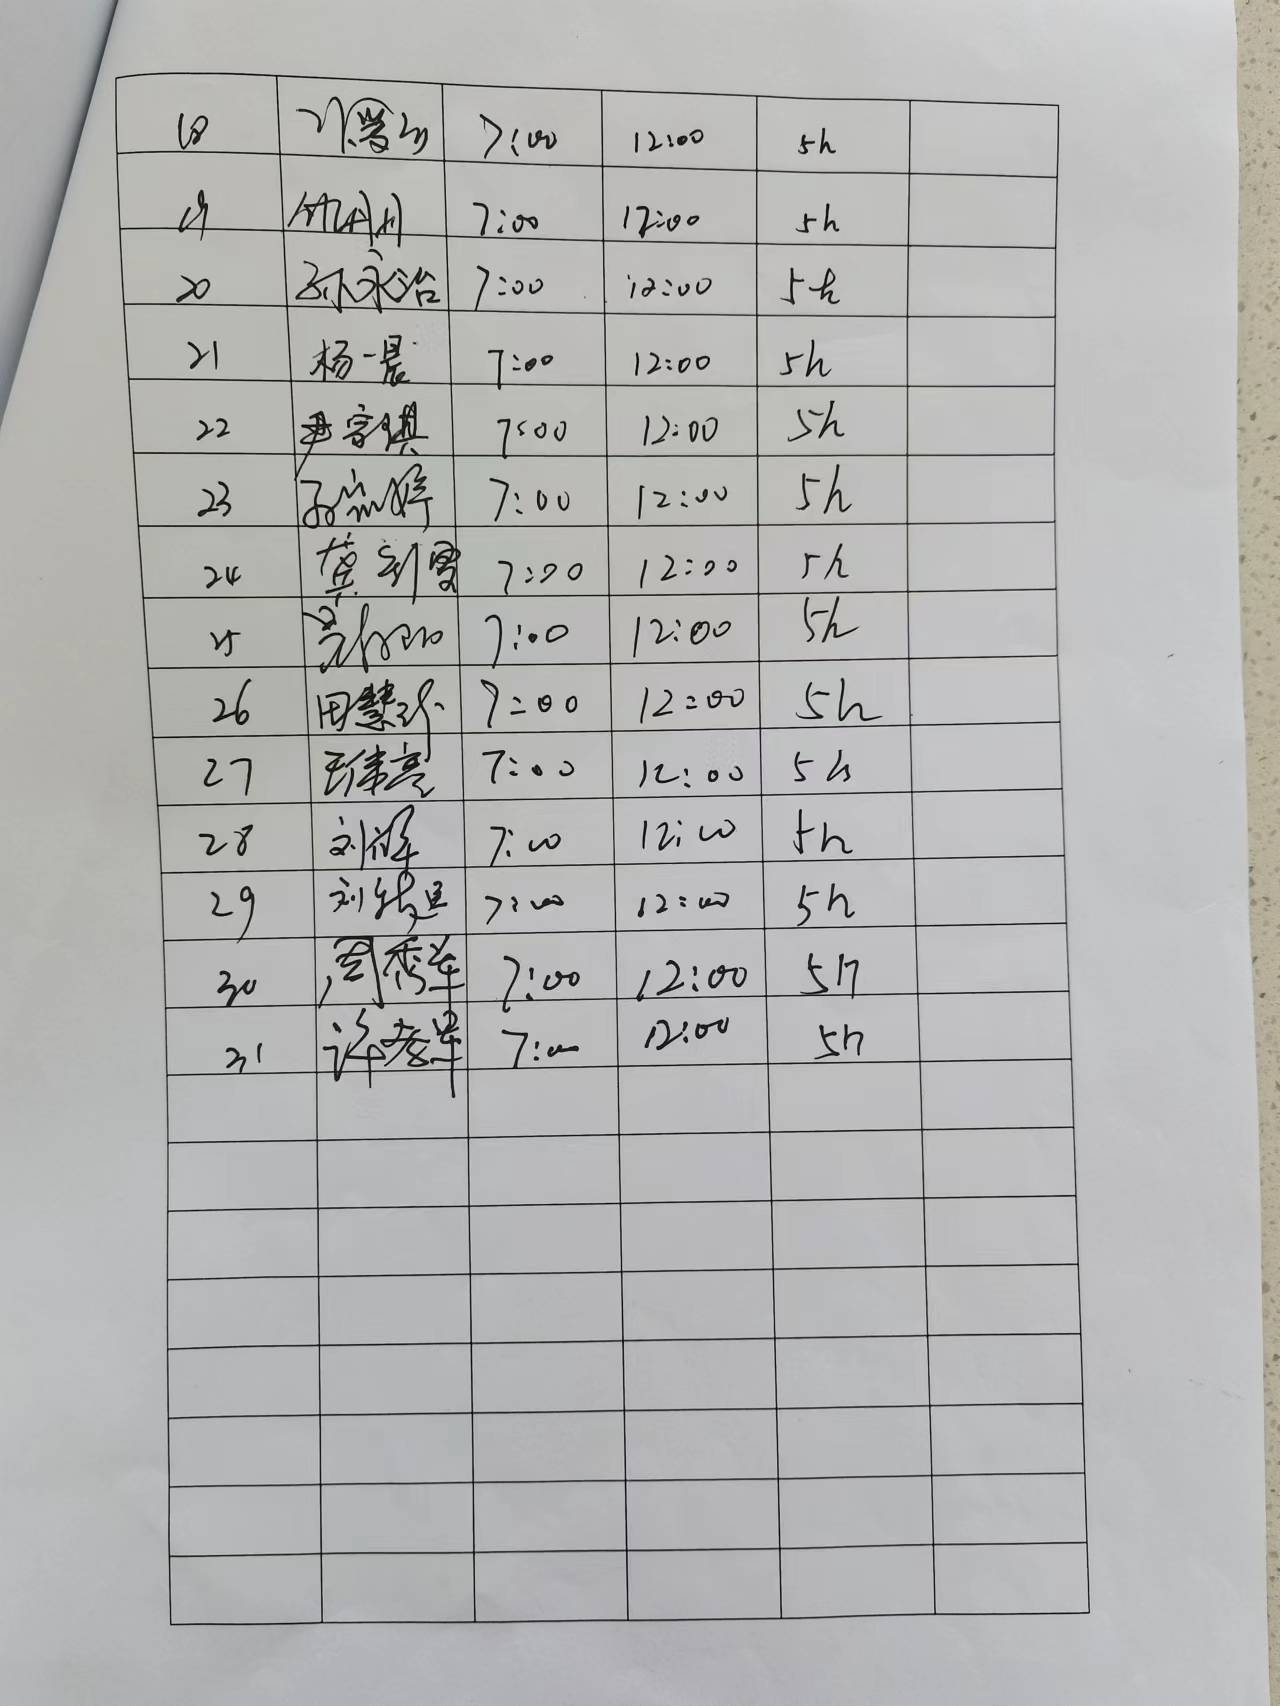 18 7:00 12:00 5h
19 7:00 12:00 5h
20 孙永治 7:00 12:00 5h
21 杨一晨 7:00 12:00 5h
22 尹容琪 7:00 12:00 5h
23 孙 婷 7:00 12:00 5h
24 7:00 12:00 5h
25 7:00 12:00 5h
26 田慧 7:00 12:00 5h
27 王伟亮 7:00 12:00 5h
28 刘 7:00 12:00 5h
29 刘 7:00 12:00 5h
30 周秀军 7:00 12:00 5h
31 许 7:00 12:00 5h